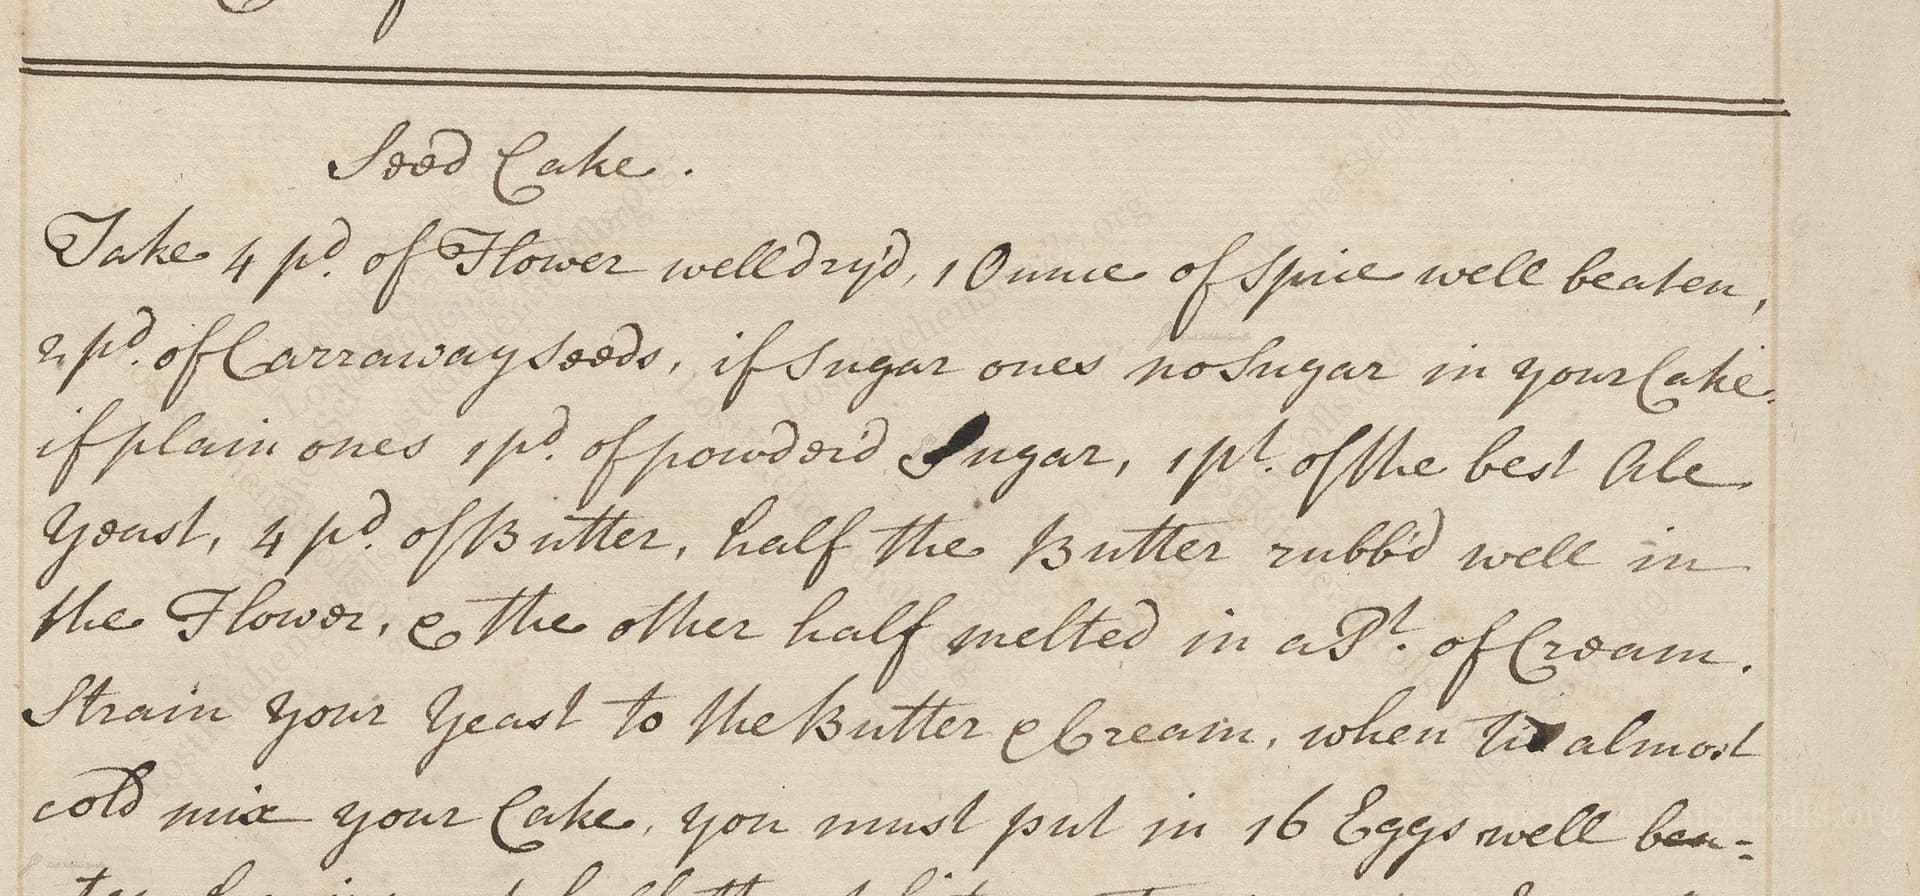 Seed Cake.
Take 4 pd. of Flower well dry'd, 1 Ounce of Spice well beaten,
2 pd. of Carraway seeds, if Sugar ones no Sugar in your Cake.
if plain ones 1 pd. of powder'd Sugar, 1 pt. of the best Ale
Yeast, 4 pd. of Butter, half the Butter rubb'd well in
the Flower, & the other half melted in a Pt. of Cream.
Strain your Yeast to the Butter & Cream, when tis almost
cold mix your Cake, you must put in 16 Eggs well bea=